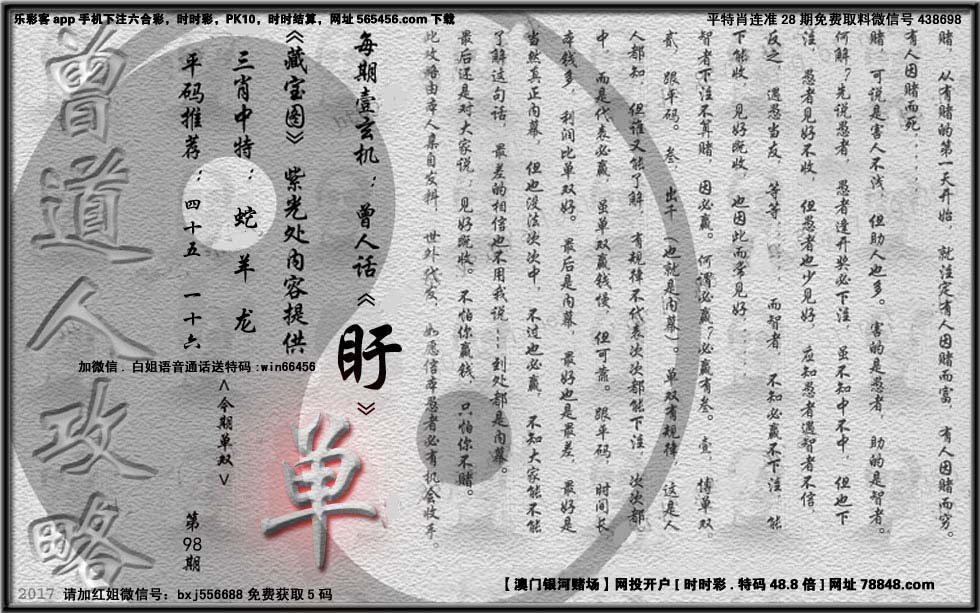 乐彩客 app 手机下注六合彩，时时彩，PK10，时时结算，网址 565456.com 下载
平特肖连准 28 期免费取料微信号 438698
赌，从有赌的第一天开始，就注定有人因赌而富，有人因赌而穷。
有人因赌而死，
赌，可说是害人不浅，但助人也多。害的是愚者，助的是智者。
何解？先说愚者，愚者逢开奖必下注，虽不知中不中，但也下
注，愚者见好不收，但愚者也少见好，应知愚者遇智者不信，
反之，遇愚当友，等等，而智者，不知必赢不下注，能
下能收，见好既收，也因此而常见好，
智者下注不算赌，因必赢。何谓必赢？必赢有叁。壹，博单双，
贰，跟平码。叁，出千（也就是内幕）。单双有规律，这是人
人都知，但谁又能了解，有规律不代表次次都能下注，次次都
中，而是代表必赢，虽单双赢钱慢，但可靠。跟平码，时间长，
本钱多，利润比单双好。最后是内幕，最好也是最差，最好是
当然真正内幕，但也没法次次中，不过也必赢，不知大家能不能
了解这句话，最差的相信也不用我说，到处都是内幕。
最后还是对大家说，见好既收。不怕你赢钱，只怕你不赌。
此攻略由本人集自发料，世外代友，如愿信本愚者必有机会收手。
每期壹玄机：曾人话《盱》
《藏宝图》紫光处内容提供
三肖中特：蛇 羊 龙
平码推荐：四十五 一十六
加微信．白姐语音通话送特码 :win66456
<今期单双>
单
第98期
曾道人攻略
2017 请加红姐微信号：bxj556688 免费获取 5 码
【 澳门银河赌场 】网投开户 [ 时时彩 . 特码 48.8 倍 ] 网址 78848.com